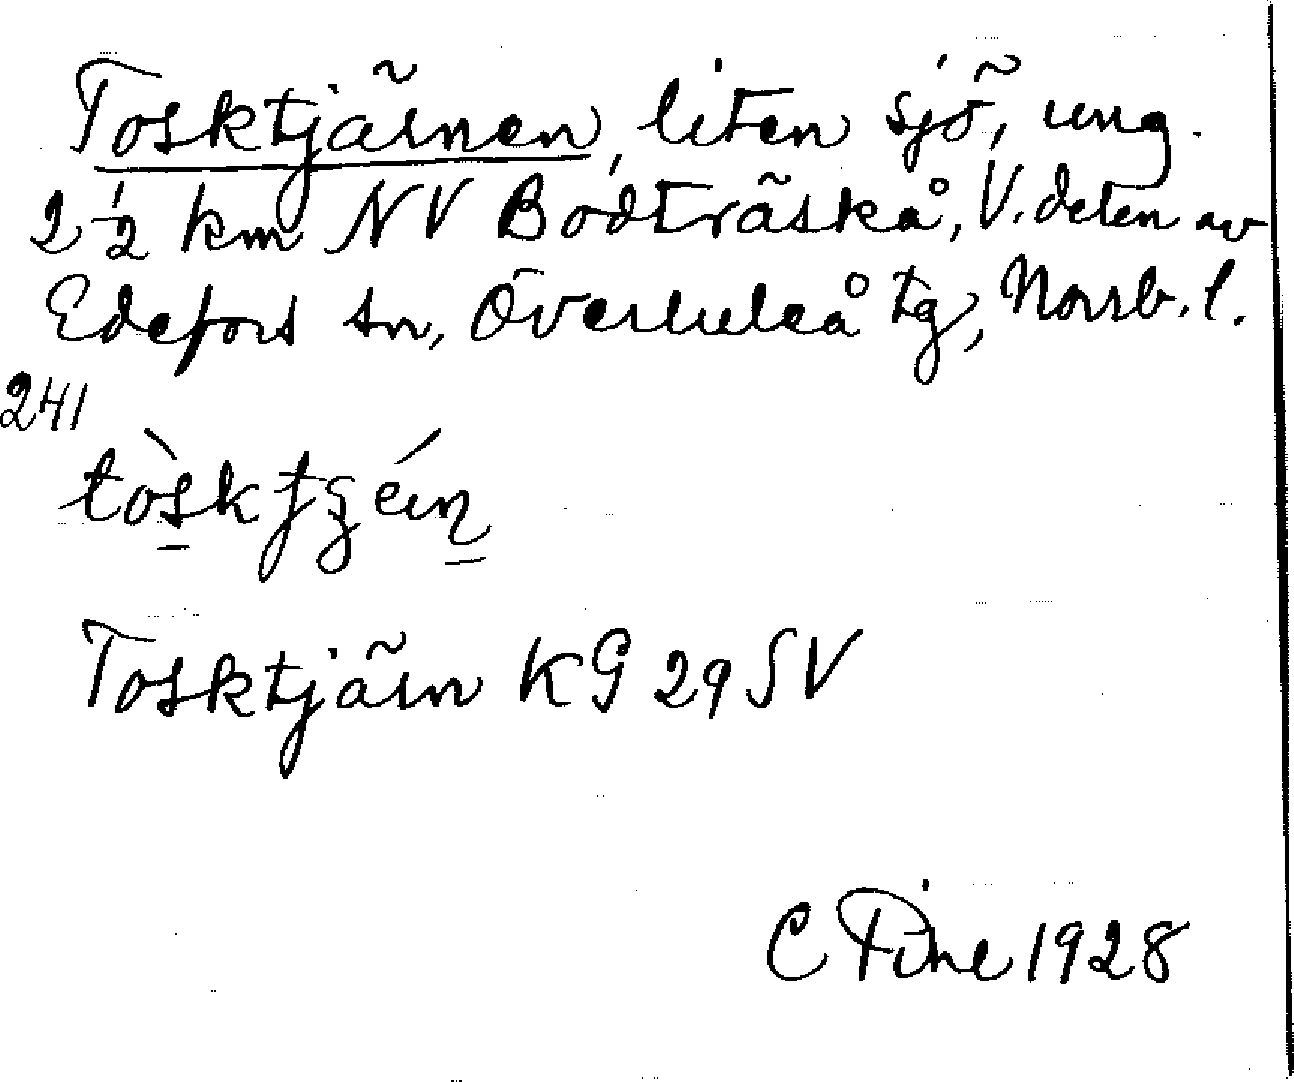 Tosktjärnen, liten sjö, ung.
2 1/2 km NV Bodträskå, V. delen av
Edefors sn, Överluleå tg, Norrb. l.
241
Tosktjärn KG 29 SV
C Fine 1928